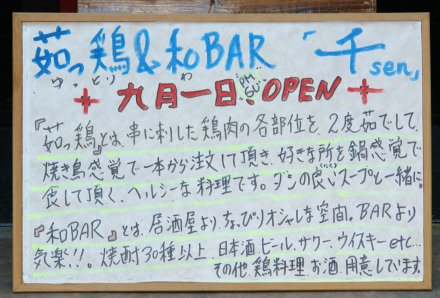 茹っ鶏&和BAR 「千
ゆっとり わ sen」
九月一日 PM5:00 OPEN
『茹っ鶏』とは、串に刺した鶏肉の各部位を、2度茹でして、
焼き鳥感覚で一本から注文して頂き、好きな所を鍋感覚で
食して頂く、ヘルシーな料理です。ダシの良いスープと一緒に。
『和BAR』とは、居酒屋より、ちょっぴりオシャレな空間。BARより
気楽!!。焼酎30種以上、日本酒、ビール、サワー、ウイスキー etc...
その他、鶏料理、お酒、用意しています。